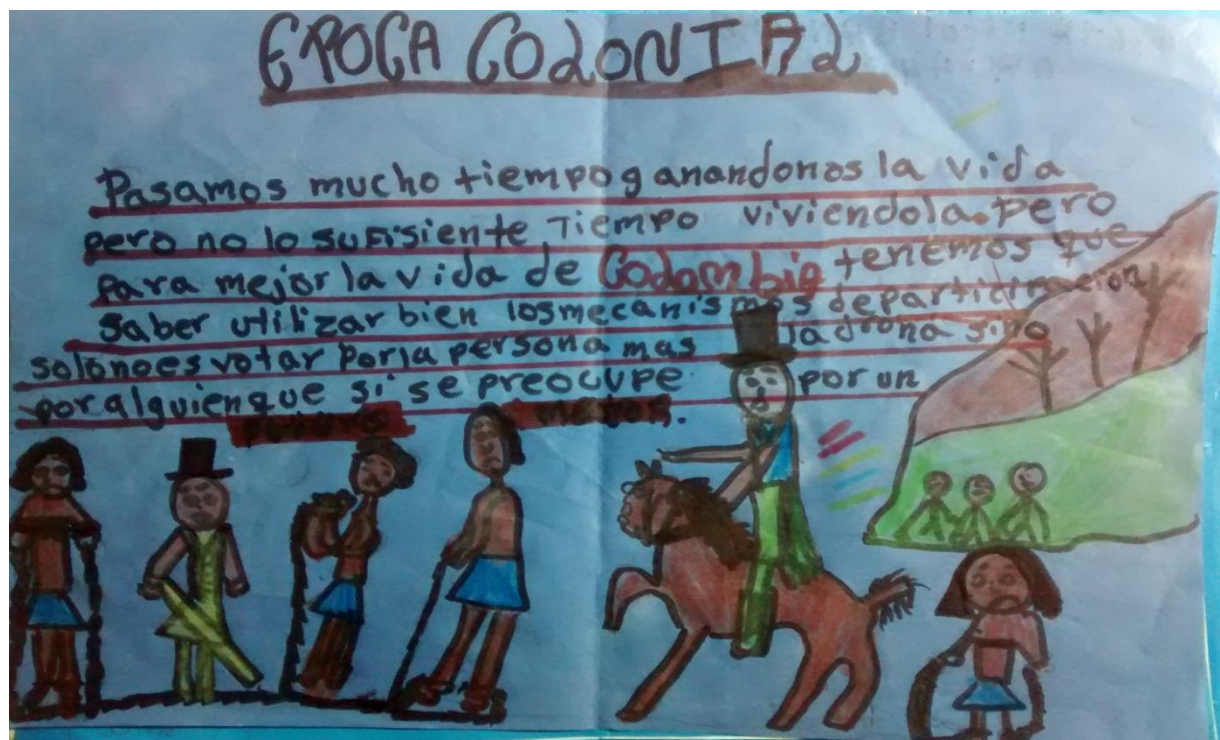 EPOCA COLONIAL
Pasamos mucho tiempo ganandonos la vida
pero no lo sufisiente Tiempo viviendola. pero
para mejor la vida de Colombia tenemos que
saber utilizar bien los mecanismos de participacion
solo no es votar por la persona mas ladrona sino
por alguien que si se preocupe por un